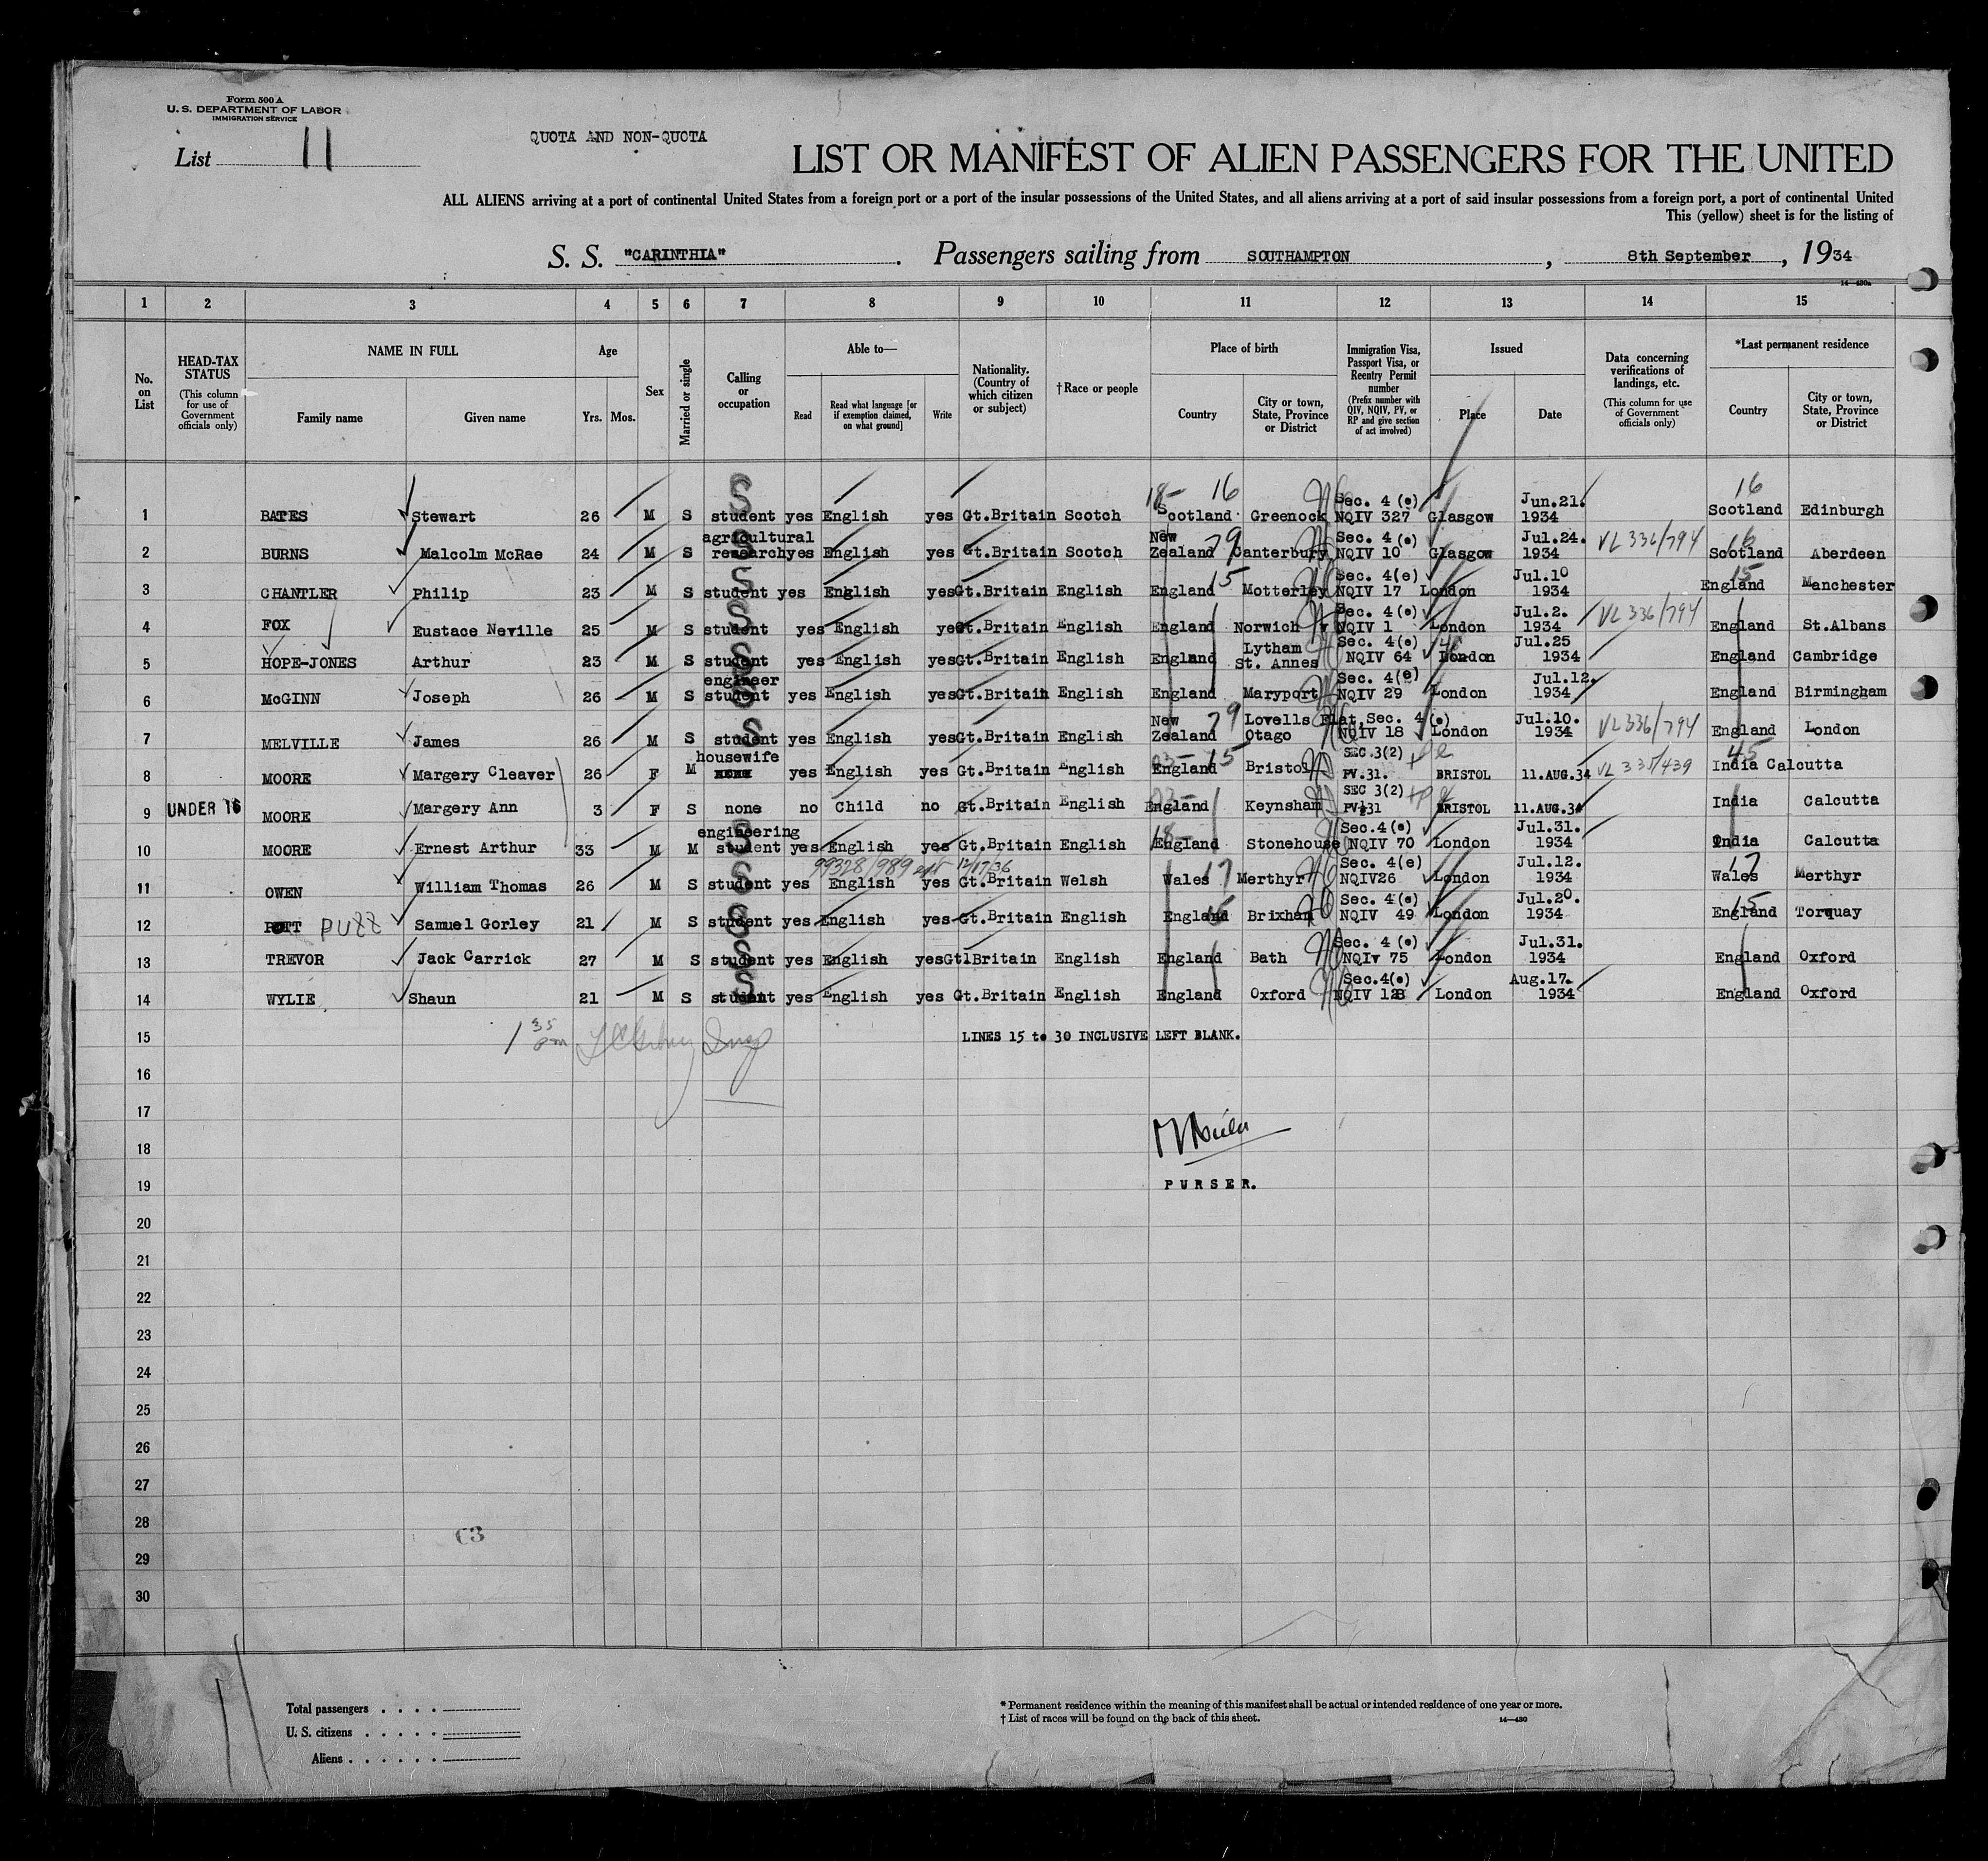 Form 500 A
U. S. DEPARTMENT OF LABOR
IMMIGRATION SERVICE
List 11
QUOTA AND NON-QUOTA
LIST OR MANIFEST OF ALIEN PASSENGERS FOR THE UNITED
ALL ALIENS arriving at a port of continental United States from a foreign port or a port of the insular possessions of the United States, and all aliens arriving at a port of said insular possessions from a foreign port, a port of continental United
This (yellow) sheet is for the listing of
S. S. "CARINTHIA". Passengers sailing from SOUTHAMPTON, 8th September, 1934
14—430a
1 2 3 4 5 6 7 8 9 10 11 12 13 14 15
No. on List
HEAD-TAX STATUS
(This column for use of Government officials only)
NAME IN FULL
Family name
Given name
Age
Yrs. Mos.
Sex
Married or single
Calling or occupation
Able to—
Read
Read what language [or if exemption claimed, on what ground]
Write
Nationality. (Country of which citizen or subject)
†Race or people
Place of birth
Country
City or town, State, Province or District
Immigration Visa, Passport Visa, or Reentry Permit number
(Prefix number with QIV, NQIV, PV, or RP and give section of act involved)
Issued
Place
Date
Data concerning verifications of landings, etc.
(This column for use of Government officials only)
*Last permanent residence
Country
City or town, State, Province or District
1 BATES Stewart 26 M S student yes English yes Gt.Britain Scotch 18- 16 Scotland Greenock Sec. 4 (e) NQIV 327 Glasgow Jun.21. 1934 16 Scotland Edinburgh
2 BURNS Malcolm McRae 24 M S agricultural research yes English yes Gt.Britain Scotch New Zealand 79 Canterbury Sec. 4 (e) NQIV 10 Glasgow Jul.24. 1934 VL 336/794 16 Scotland Aberdeen
3 CHANTLER Philip 23 M S student yes English yes Gt.Britain English England 15 Motterley Sec. 4(e) NQIV 17 London Jul.10 1934 15 England Manchester
4 FOX Eustace Neville 25 M S student yes English yes Gt.Britain English England Norwich Sec. 4 (e) NQIV 1 London Jul.2. 1934 VL 336/794 England St.Albans
5 HOPE-JONES Arthur 23 M S student yes English yes Gt.Britain English England Lytham St. Annes Sec. 4(e) NQIV 64 London Jul.25 1934 England Cambridge
6 McGINN Joseph 26 M S engineer student yes English yes Gt.Britain English England Maryport Sec. 4(e) NQIV 29 London Jul.12. 1934 England Birmingham
7 MELVILLE James 26 M S student yes English yes Gt.Britain English New Zealand 79 Lovells Flat, Otago Sec. 4 (e) NQIV 18 London Jul.10. 1934 VL336/794 England London
8 MOORE Margery Cleaver 26 F M housewife yes English yes Gt.Britain English England 15 Bristol SEC.3(2) PV.31. BRISTOL 11.AUG.34 VL 335/439 45 India Calcutta
9 UNDER 16 MOORE Margery Ann 3 F S none no Child no Gt.Britain English England Keynsham SEC 3(2) PV 31 BRISTOL 11.AUG.34 India Calcutta
10 MOORE Ernest Arthur 33 M M engineering student yes English yes Gt.Britain English 18- England Stonehouse Sec.4(e) NQIV 70 London Jul.31. 1934 India Calcutta
99328/989 12/17/36
11 OWEN William Thomas 26 M S student yes English yes Gt.Britain Welsh Wales 17 Merthyr Sec. 4(e) NQIV26 London Jul.12. 1934 17 Wales Merthyr
12 PUZZ Samuel Gorley 21 M S student yes English yes Gt.Britain English England 15 Brixham Sec. 4(e) NQIV 49 London Jul.20. 1934 15 England Torquay
13 TREVOR Jack Carrick 27 M S student yes English yes GtlBritain English England Bath Sec. 4 (e) NQIv 75 London Jul.31. 1934 England Oxford
14 WYLIE Shaun 21 M S student yes English yes Gt.Britain English England Oxford Sec.4(e) NQIV 128 London Aug.17. 1934 England Oxford
15 1 35 pm LINES 15 to 30 INCLUSIVE LEFT BLANK.
16
17
18
19 PURSER.
20
21
22
23
24
25
26
27
28
C3
29
30
Total passengers
U. S. citizens
Aliens
* Permanent residence within the meaning of this manifest shall be actual or intended residence of one year or more.
† List of races will be found on the back of this sheet.
14—430